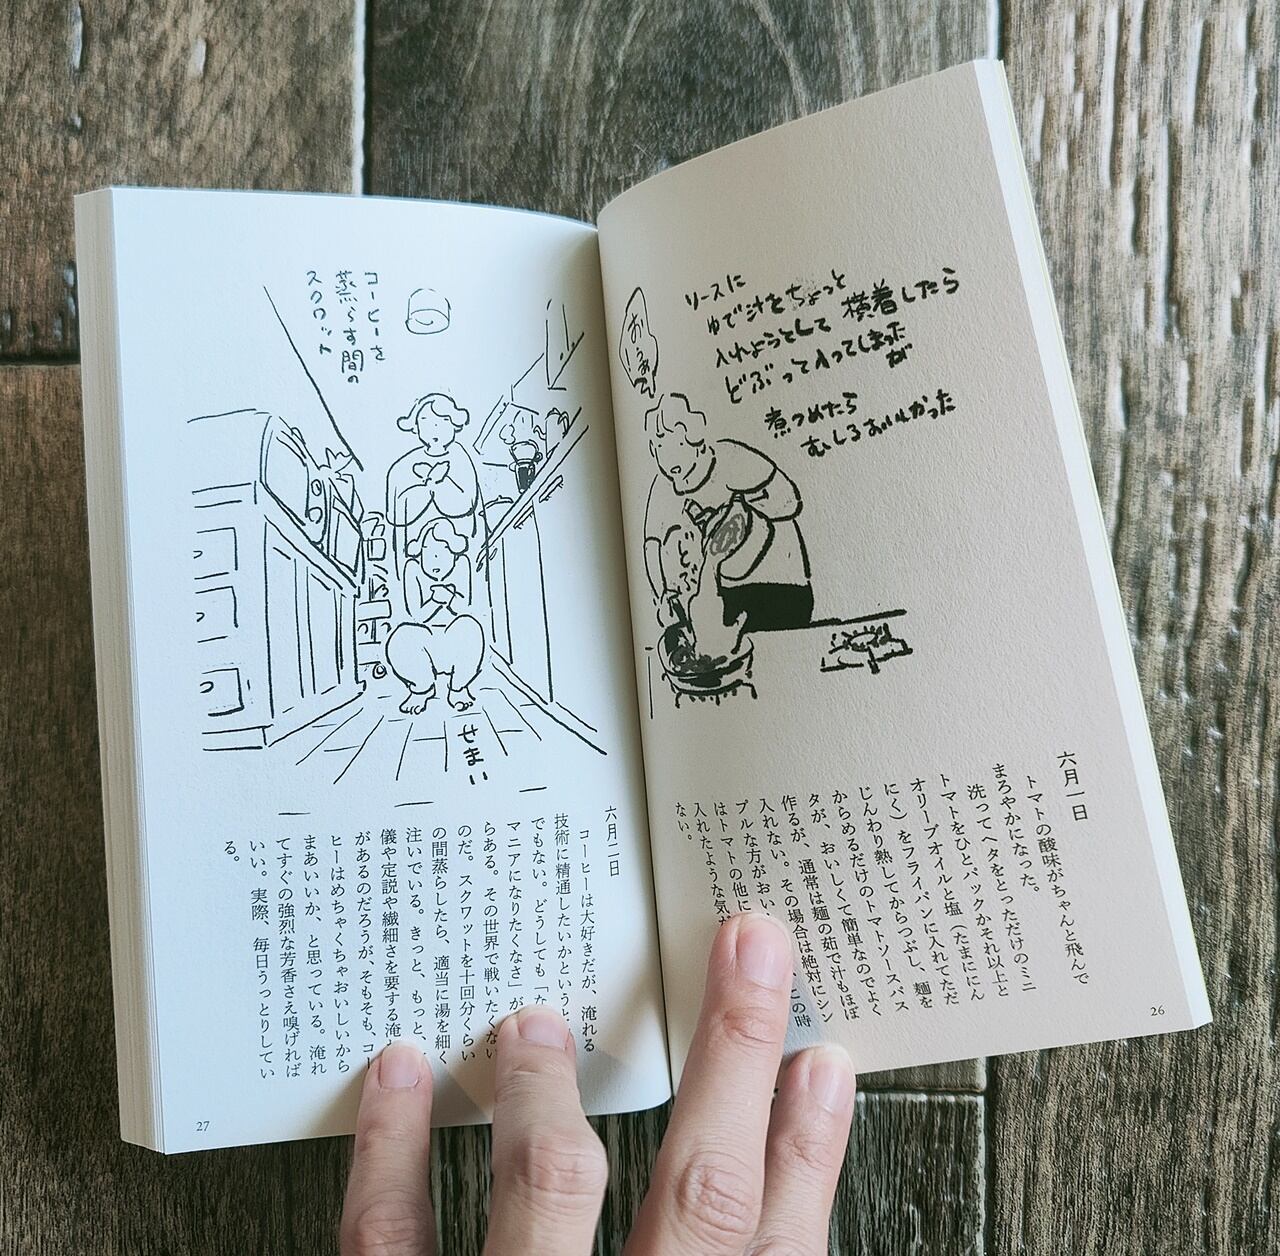 ソースに
ゆで汁をちょっと
入れようとして横着したら
どぶって入ってしまった
が
煮つめたら
むしろおいしかった
どぶ
六月一日
トマトの酸味がちゃんと飛んで
まろやかになった。
洗ってヘタをとっただけのミニ
トマトをひとパックかそれ以上と
オリーブオイルと塩(たまににん
にく)をフライパンに入れてただ
じんわり熱してからつぶし、麺を
からめるだけのトマトソースパス
タが、おいしくて簡単なのでよく
作るが、通常は麺の茹で汁もほぼ
入れない。その場合は絶対にシン
プルな方がおい
この時
はトマトの他に
入れたような気が
ない。
26
コーヒーを
蒸らす間の
スクワット
せまい
六月二日
コーヒーは大好きだが、淹れる
技術に精通したいかというと
でもない。どうしても「な
マニアになりたくなさ」が
らある。その世界で戦いたくない
のだ。スクワットを十回分くらい
の間蒸らしたら、適当に湯を細く
注いでいる。きっと、もっと、
儀や定説や繊細さを要する淹
があるのだろうが、そもそも、コー
ヒーはめちゃくちゃおいしいから
まあいいか、と思っている。淹れ
てすぐの強烈な芳香さえ嗅げれば
いい。実際、毎日うっとりしてい
る。
27